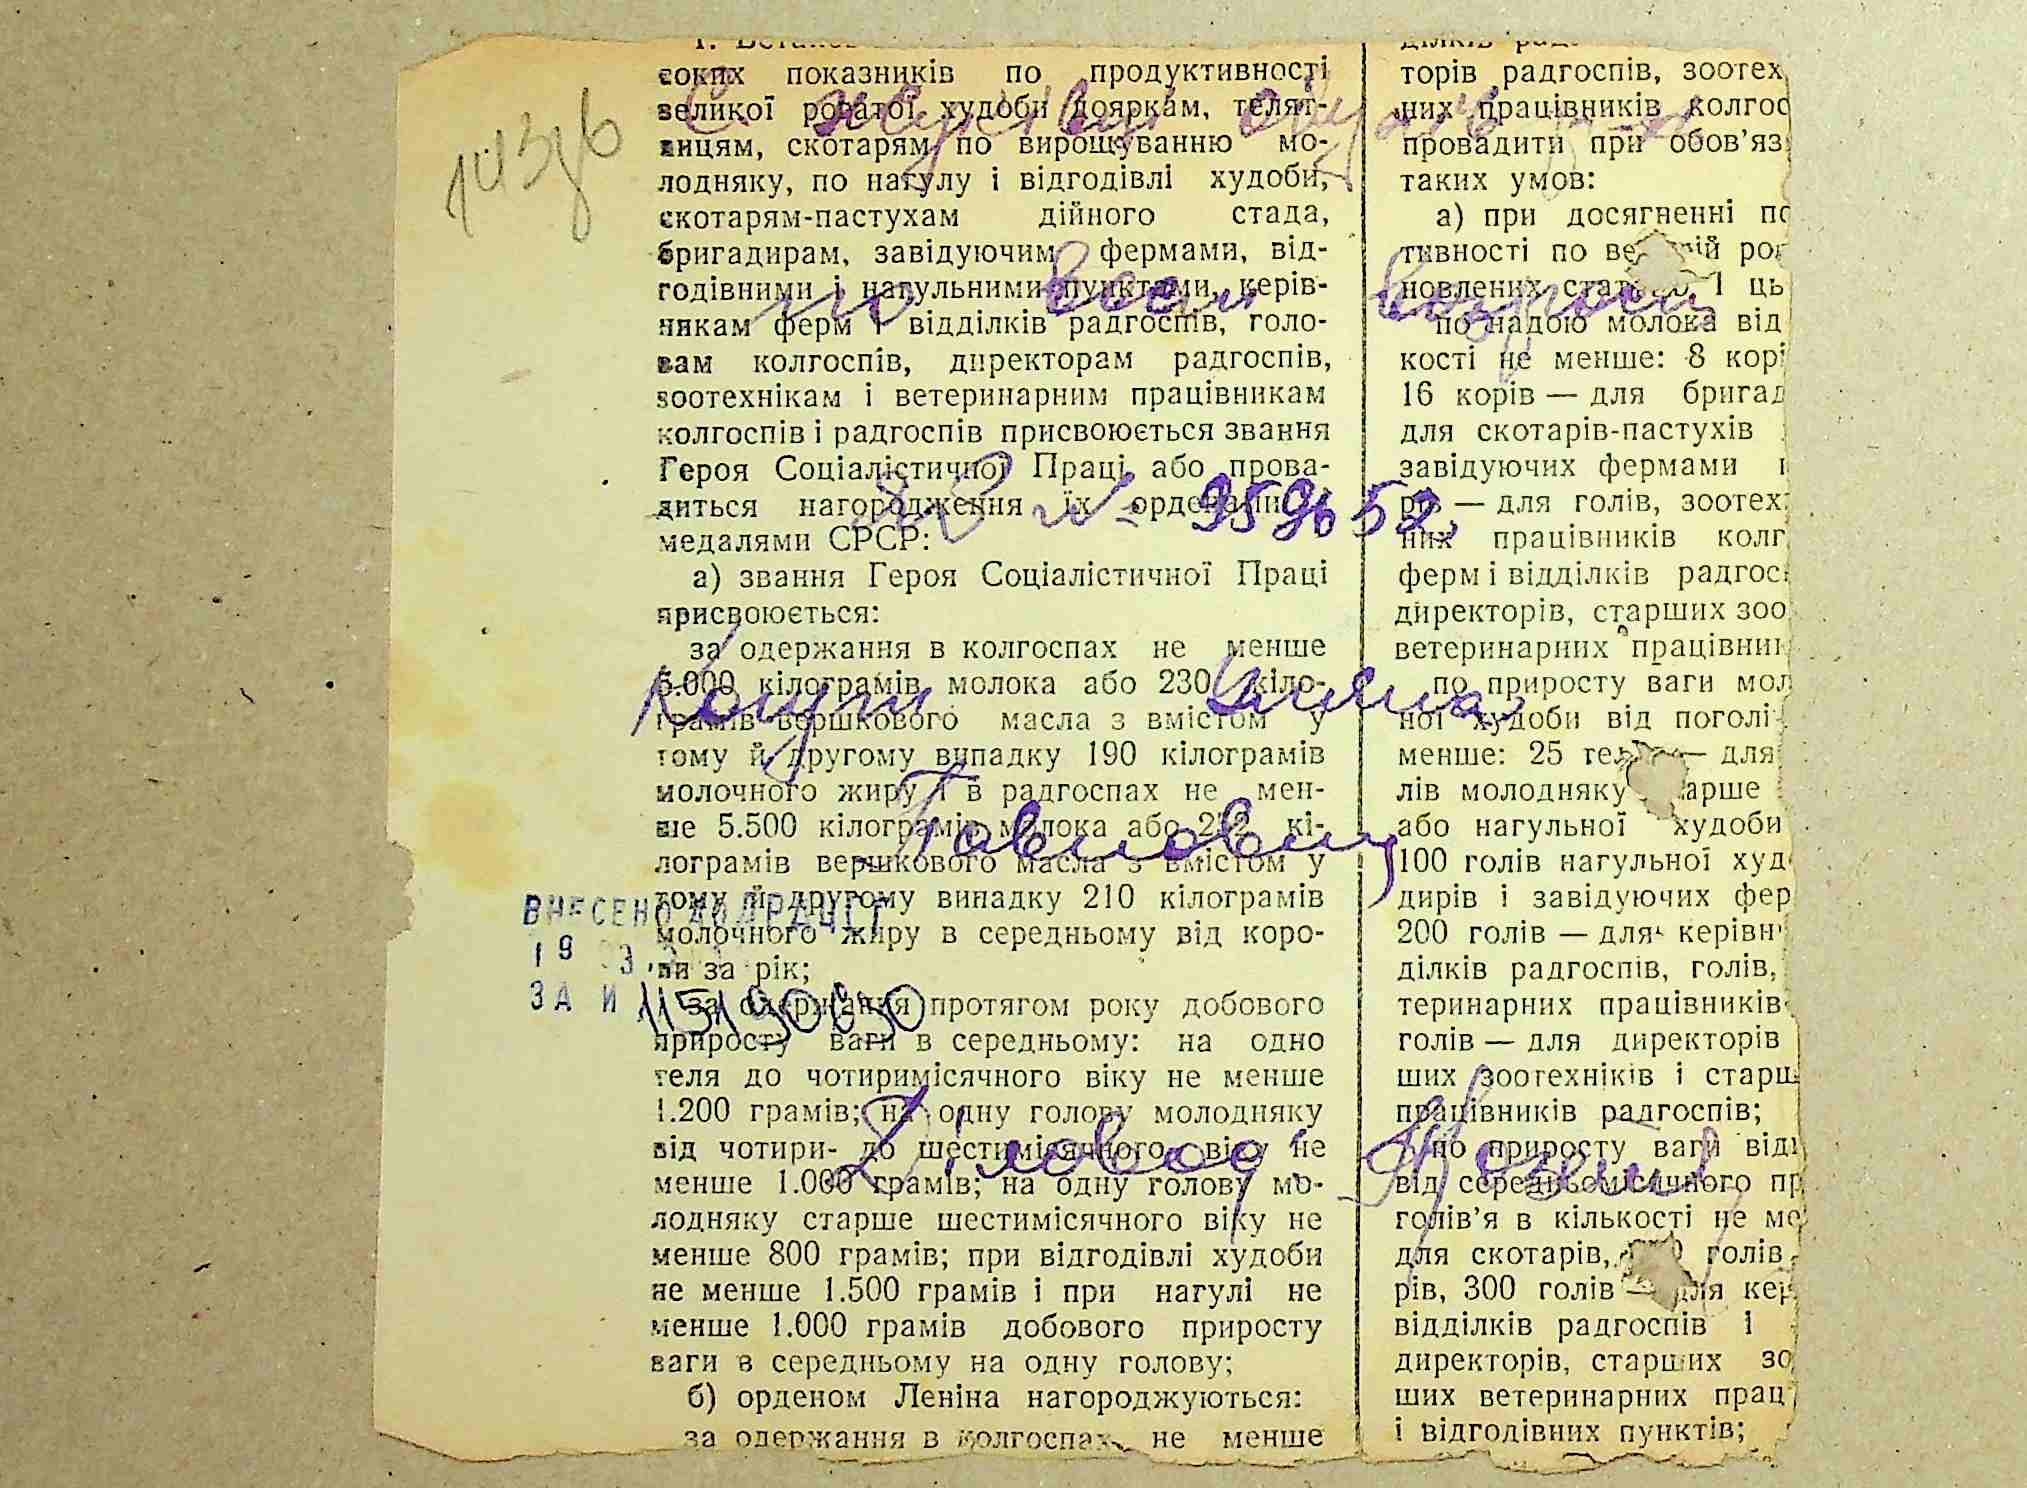 соких показників по продуктивності
великої рогатої худоби дояркам, телят-
ницям, скотарям по вирощуванню мо-
лодняку, по нагулу і відгодівлі худоби,
скотарям-пастухам дійного стада,
бригадирам, завідуючим фермами, від-
годівними і нагульними пунктами, керів-
никам ферм і відділків радгоспів, голо-
вам колгоспів, директорам радгоспів,
зоотехнікам і ветеринарним працівникам
колгоспів і радгоспів присвоюється звання
Героя Соціалістичної Праці або прова-
диться нагородження їх орденами
медалями СРСР:
а) звання Героя Соціалістичної Праці
присвоюється:
за одержання в колгоспах не менше
5.000 кілограмів молока або 230 кіло-
грамів вершкового масла з вмістом у
тому й другому випадку 190 кілограмів
молочного жиру і в радгоспах не мен-
ше 5.500 кілограмів молока або 252 кі-
лограмів вершкового масла з вмістом у
тому й другому випадку 210 кілограмів
молочного жиру в середньому від коро-
ви за рік;
за одержання протягом року добового
приросту ваги в середньому: на одно
теля до чотиримісячного віку не менше
1.200 грамів; на одну голову молодняку
від чотири- до шестимісячного віку не
менше 1.000 грамів; на одну голову мо-
лодняку старше шестимісячного віку не
менше 800 грамів; при відгодівлі худоби
не менше 1.500 грамів і при нагулі не
менше 1.000 грамів добового приросту
ваги в середньому на одну голову;
б) орденом Леніна нагороджуються:
за одержання в колгоспах не менше
торів радгоспів, зоотех
них працівників колгос
провадити при обов'яз
таких умов:
а) при досягненні по
тивності по ве рог
новлених 1 ць
по надою молока від
кості не менше: 8 корі
16 корів — для бригад
для скотарів-пастухів
завідуючих фермами
рів — для голів, зоотех
них працівників колг
ферм і відділків радгос
директорів, старших зоо
ветеринарних працівник
по приросту ваги мол
ної худоби від поголі
менше: 25 — для
лів молодняку старше
або нагульної худоби
100 голів нагульної худ
дирів і завідуючих фер
200 голів — для керівн
ділків радгоспів, голів,
теринарних працівників
голів — для директорів
ших зоотехніків і старш
працівників радгоспів;
по приросту ваги від
від середньомісячного пр
голів'я в кількості не ме
для скотарів, голів
рів, 300 голів — для кер
відділків радгоспів і
директорів, старших зо
ших ветеринарних прац
і відгодівних пунктів;
по всем
№ 959652
Павлович
Діловод
ВНЕСЕНО
ЗА И 11519080